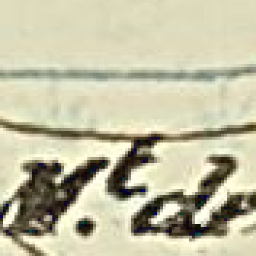 M.t de